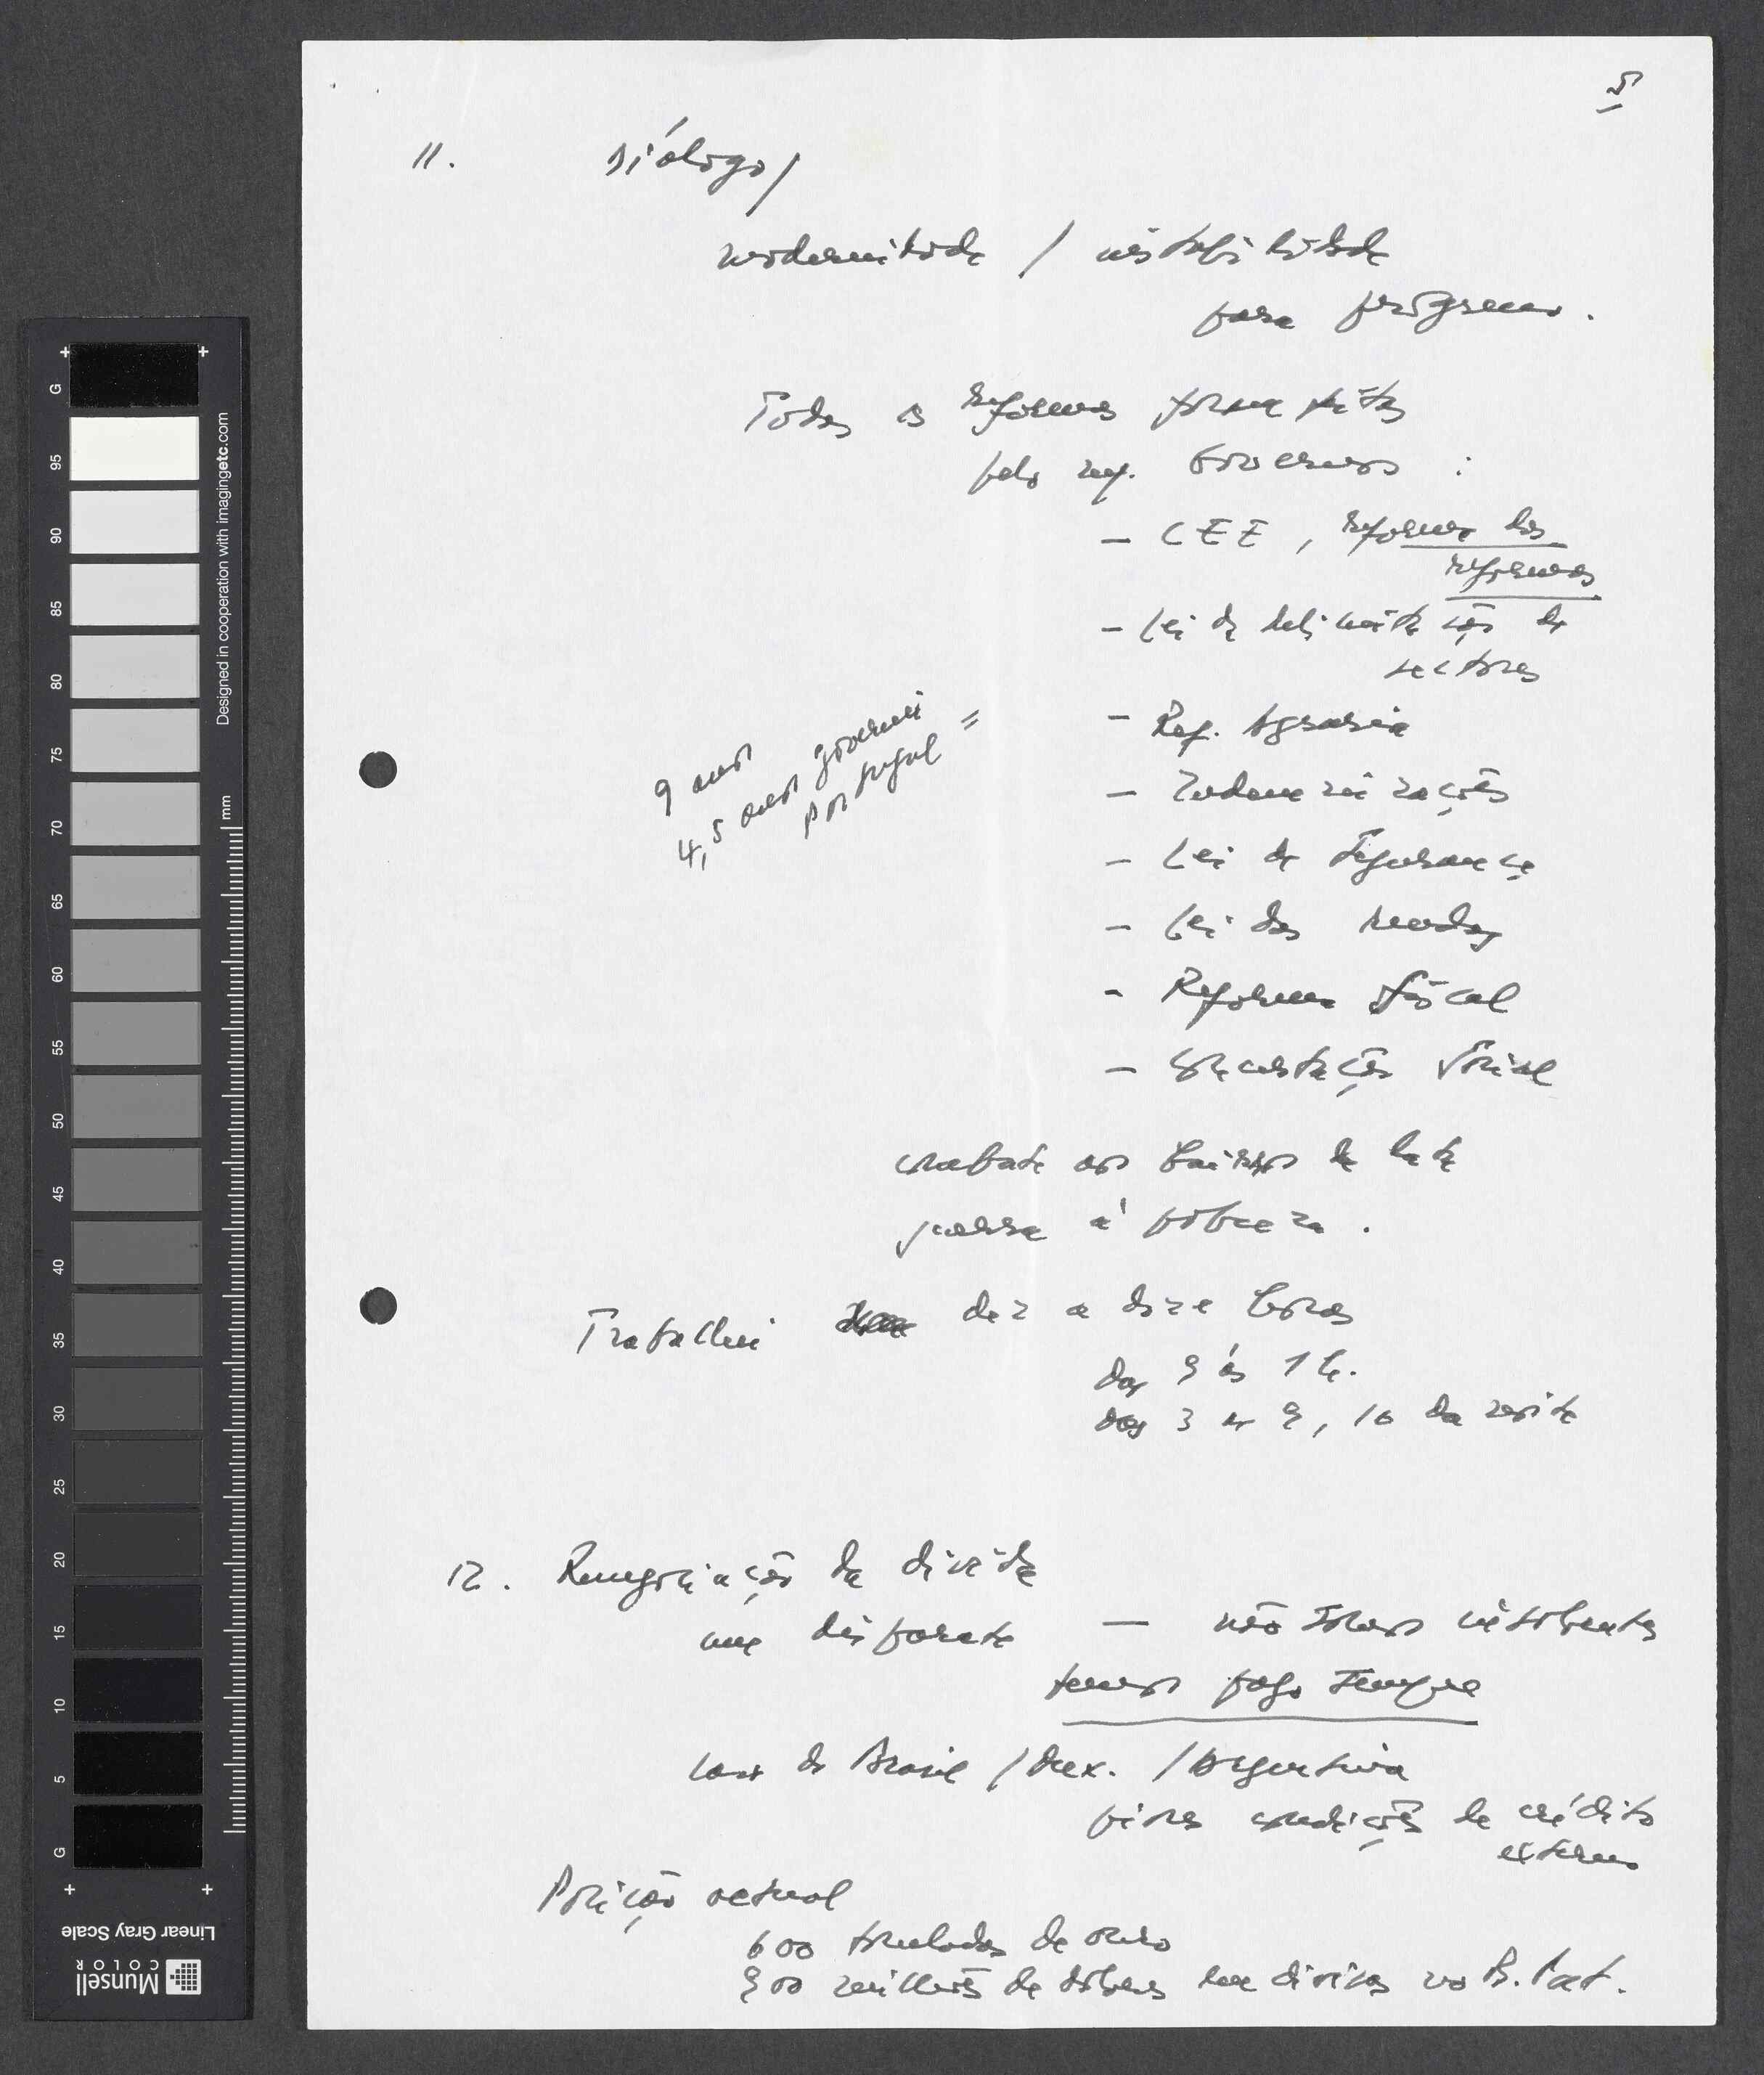 5
11. Diálogo/
modernidade / instabilidade
para progresso.
Todas as reformas foram feitas
pelos meus Governos :
- CEE, reforma das
reformas
- Lei de delimitação de
sectores
- Ref. Agrária
- Indemnizações
- Lei de Segurança
- Lei das rendas
- Reforma fiscal
- Concertação Social
9 anos
4,5 anos governei =
Portugal
combate aos bairros de lata
guerra à pobreza.
Trabalhei dez a doze horas
das 9 às 1 h.
das 3 às 9, 10 da noite
12. Renegociação da dívida
um disparate — não somos insolventes
temos pago sempre
caso do Brasil / Mex. / Argentina
piores condições de crédito
externo
Posição actual
600 toneladas de ouro
900 milhões de dólares em divisas no B. Port.
G
95
90
85
80
75
70
65
60
55
50
45
40
35
30
25
20
15
10
5
G
mm
Designed in cooperation with imagingetc.com
Linear Gray Scale
Munsell
COLOR